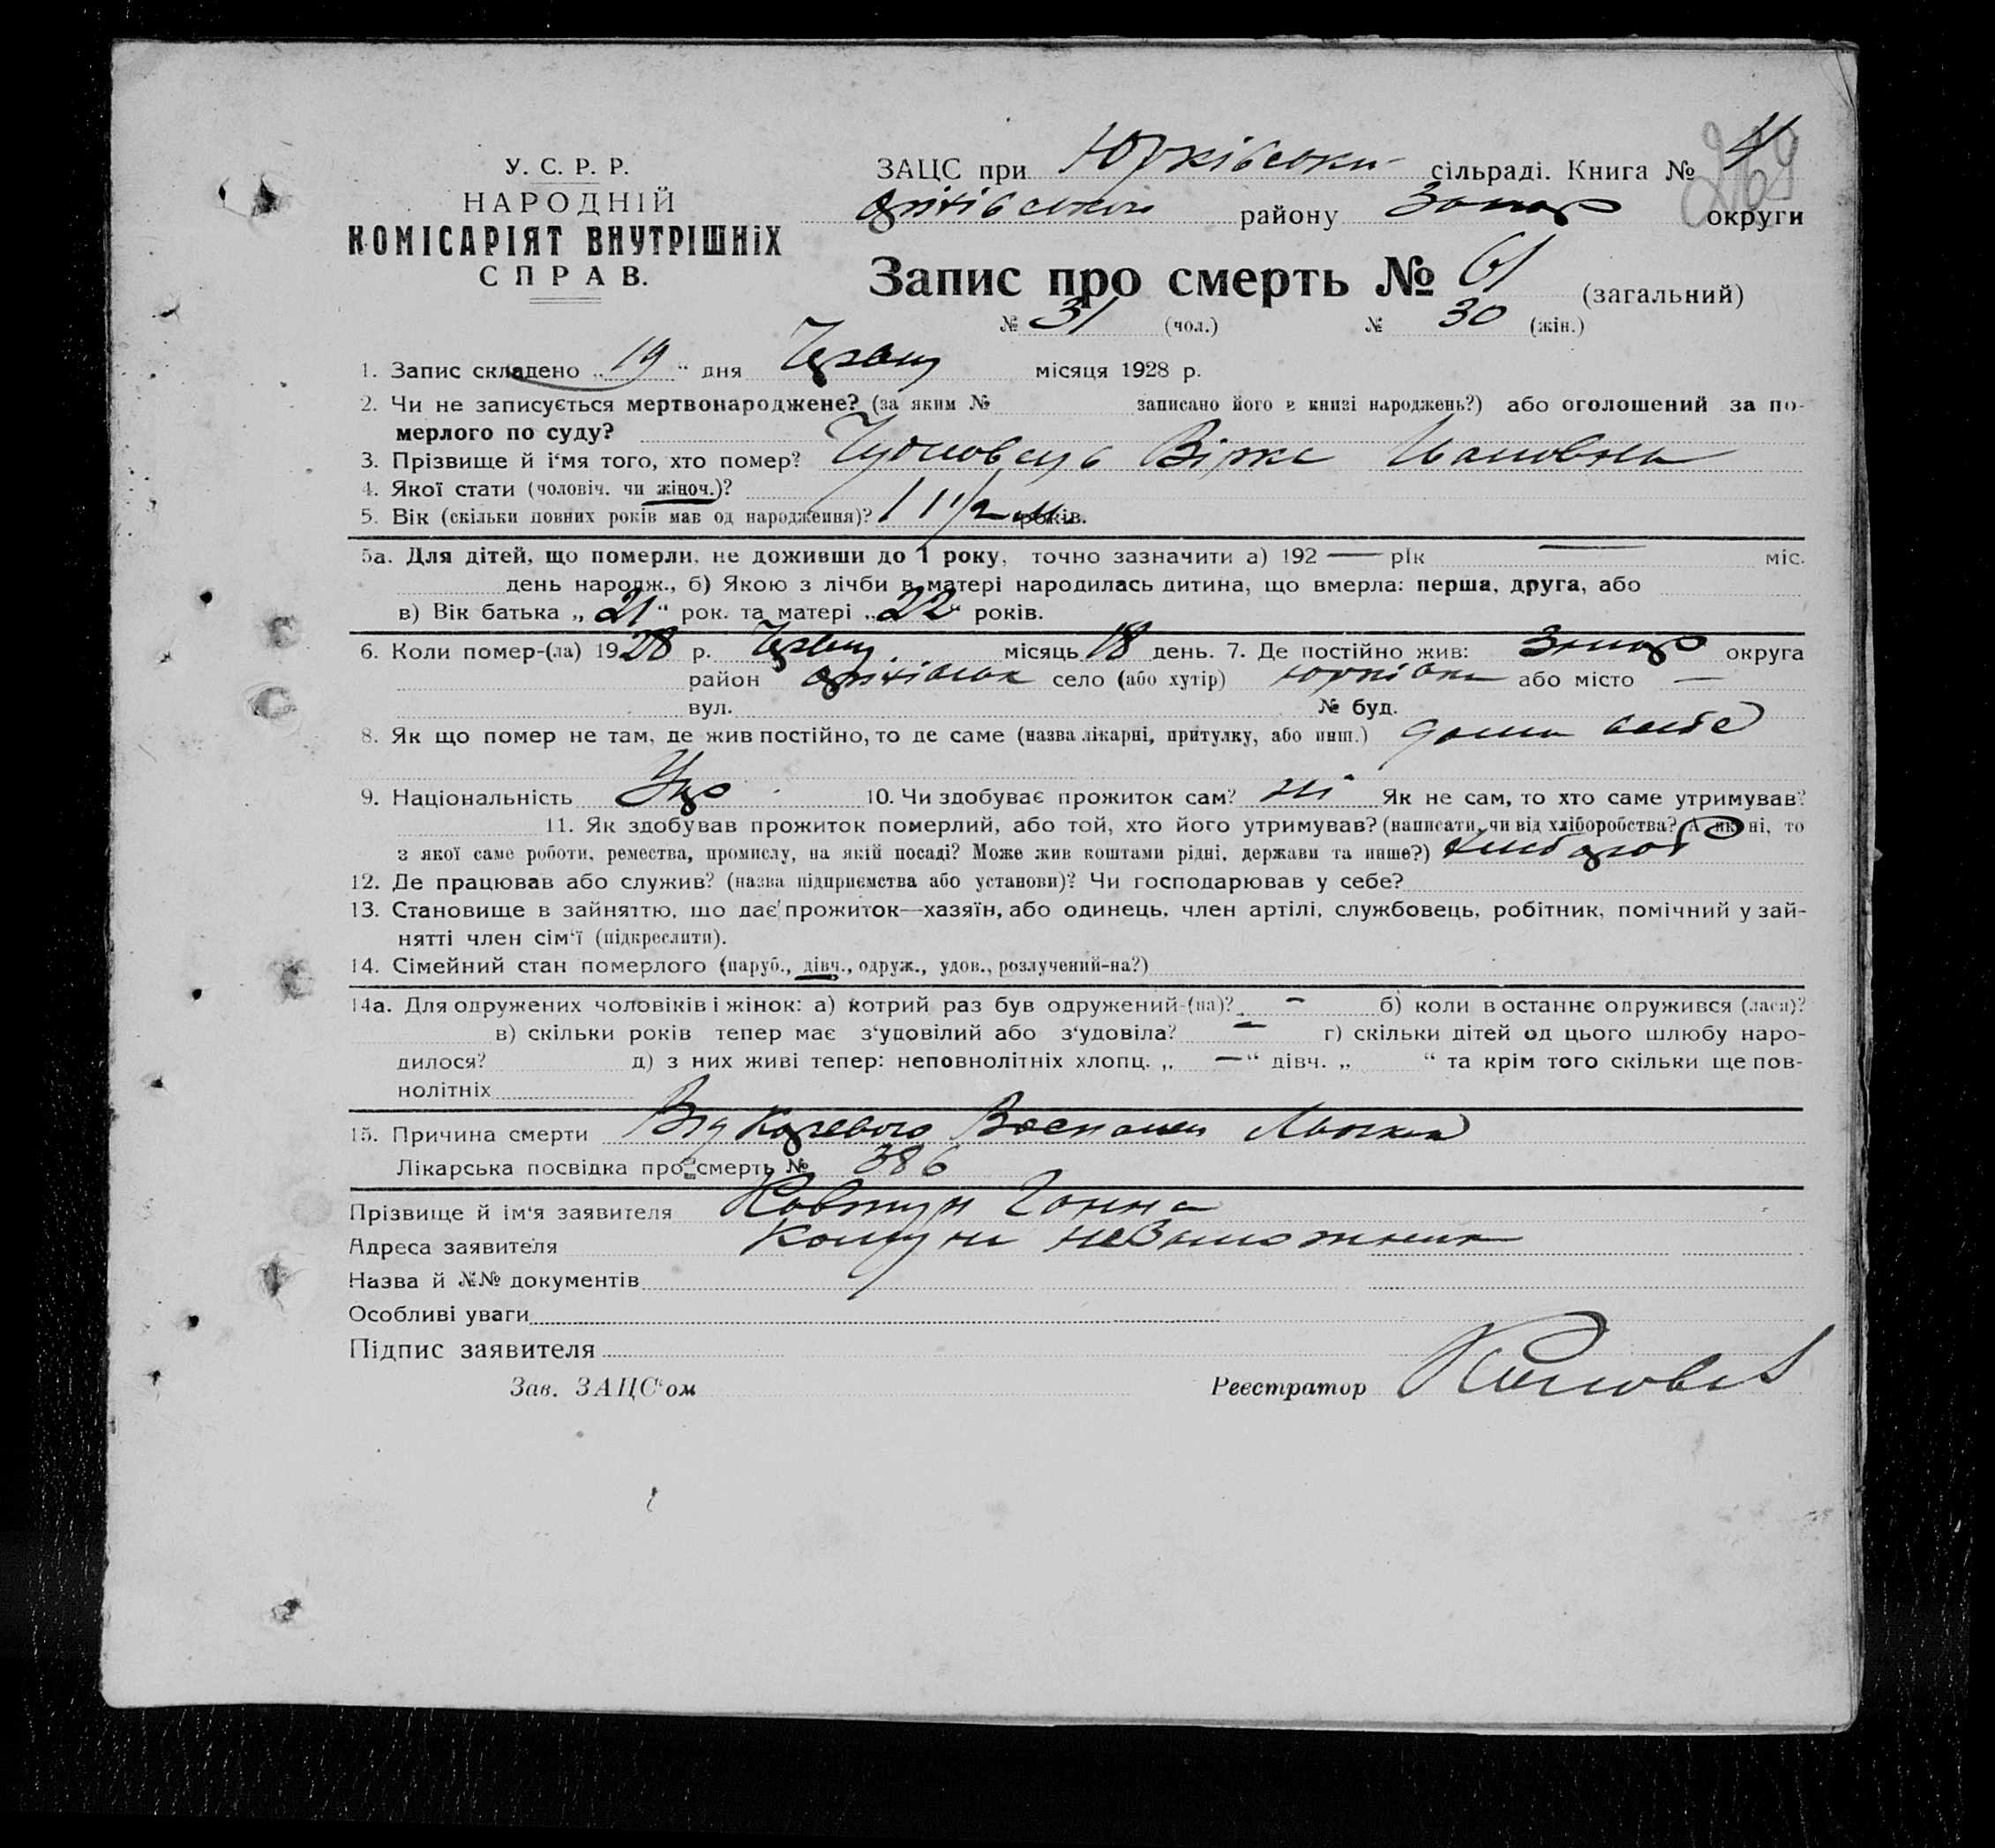 У. С. Р. Р.
НАРОДНІЙ
КОМІСАРІЯТ ВНУТРІШНІХ
СПРАВ.
ЗАЦС при Юрківськи сільраді. Книга № 4
269
району Запор округи
Запис про смерть № 61 (загальний)
№ 31 (чол.) № 30 (жін.)
1. Запис складено „19“ дня місяця 1928 р.
2. Чи не записується мертвонароджене? (за яким № записано його в книзі народжень?) або оголошений за по-
мерлого по суду?
3. Прізвище й і'мя того, хто помер? Вірка Івановна
4. Якої стати (чоловіч. чи жіноч.)?
5. Вік (скільки повних років мав од народження)? 1 1/2 років.
5а. Для дітей, що померли, не доживши до 1 року, точно зазначити а) 192 — рік — міс.
день народж., б) Якою з лічби в матері народилась дитина, що вмерла: перша, друга, або
в) Вік батька „21“ рок. та матері „22“ років.
6. Коли помер-(ла) 1928 р. місяць 18 день. 7. Де постійно жив: Запор округа
район село (або хутір) Юрківка або місто —
вул. № буд.
8. Як що помер не там, де жив постійно, то де саме (назва лікарні, притулку, або инш.) дома
9. Національність Укр 10. Чи здобуває прожиток сам? ні Як не сам, то хто саме утримував?
11. Як здобував прожиток померлий, або той, хто його утримував? (написати, чи від хліборобства? А як ні, то
з якої саме роботи, ремества, промислу, на якій посаді? Може жив коштами рідні, держави та инше?) хлібороб
12. Де працював або служив? (назва підприємства або установи)? Чи господарював у себе?
13. Становище в зайняттю, що дає прожиток—хазяїн, або одинець, член артілі, службовець, робітник, помічний у зай-
нятті член сім'ї (підкреслити).
14. Сімейний стан померлого (паруб., дівч., одруж., удов., розлучений-на?)
14а. Для одружених чоловіків і жінок: а) котрий раз був одружений-(на)? — б) коли в останнє одружився (лася)?
в) скільки років тепер має з'удовілий або з'удовіла? — г) скільки дітей од цього шлюбу наро-
дилося? д) з них живі тепер: неповнолітніх хлопц. „—“ дівч. „ “ та крім того скільки ще пов-
нолітніх
15. Причина смерти Від
Лікарська посвідка про смерть № 386
Прізвище й ім'я заявителя Ковтун Ганна
Адреса заявителя Комуни незаможник
Назва й №№ документів
Особливі уваги
Підпис заявителя
Зав. ЗАЦС'ом Реєстратор